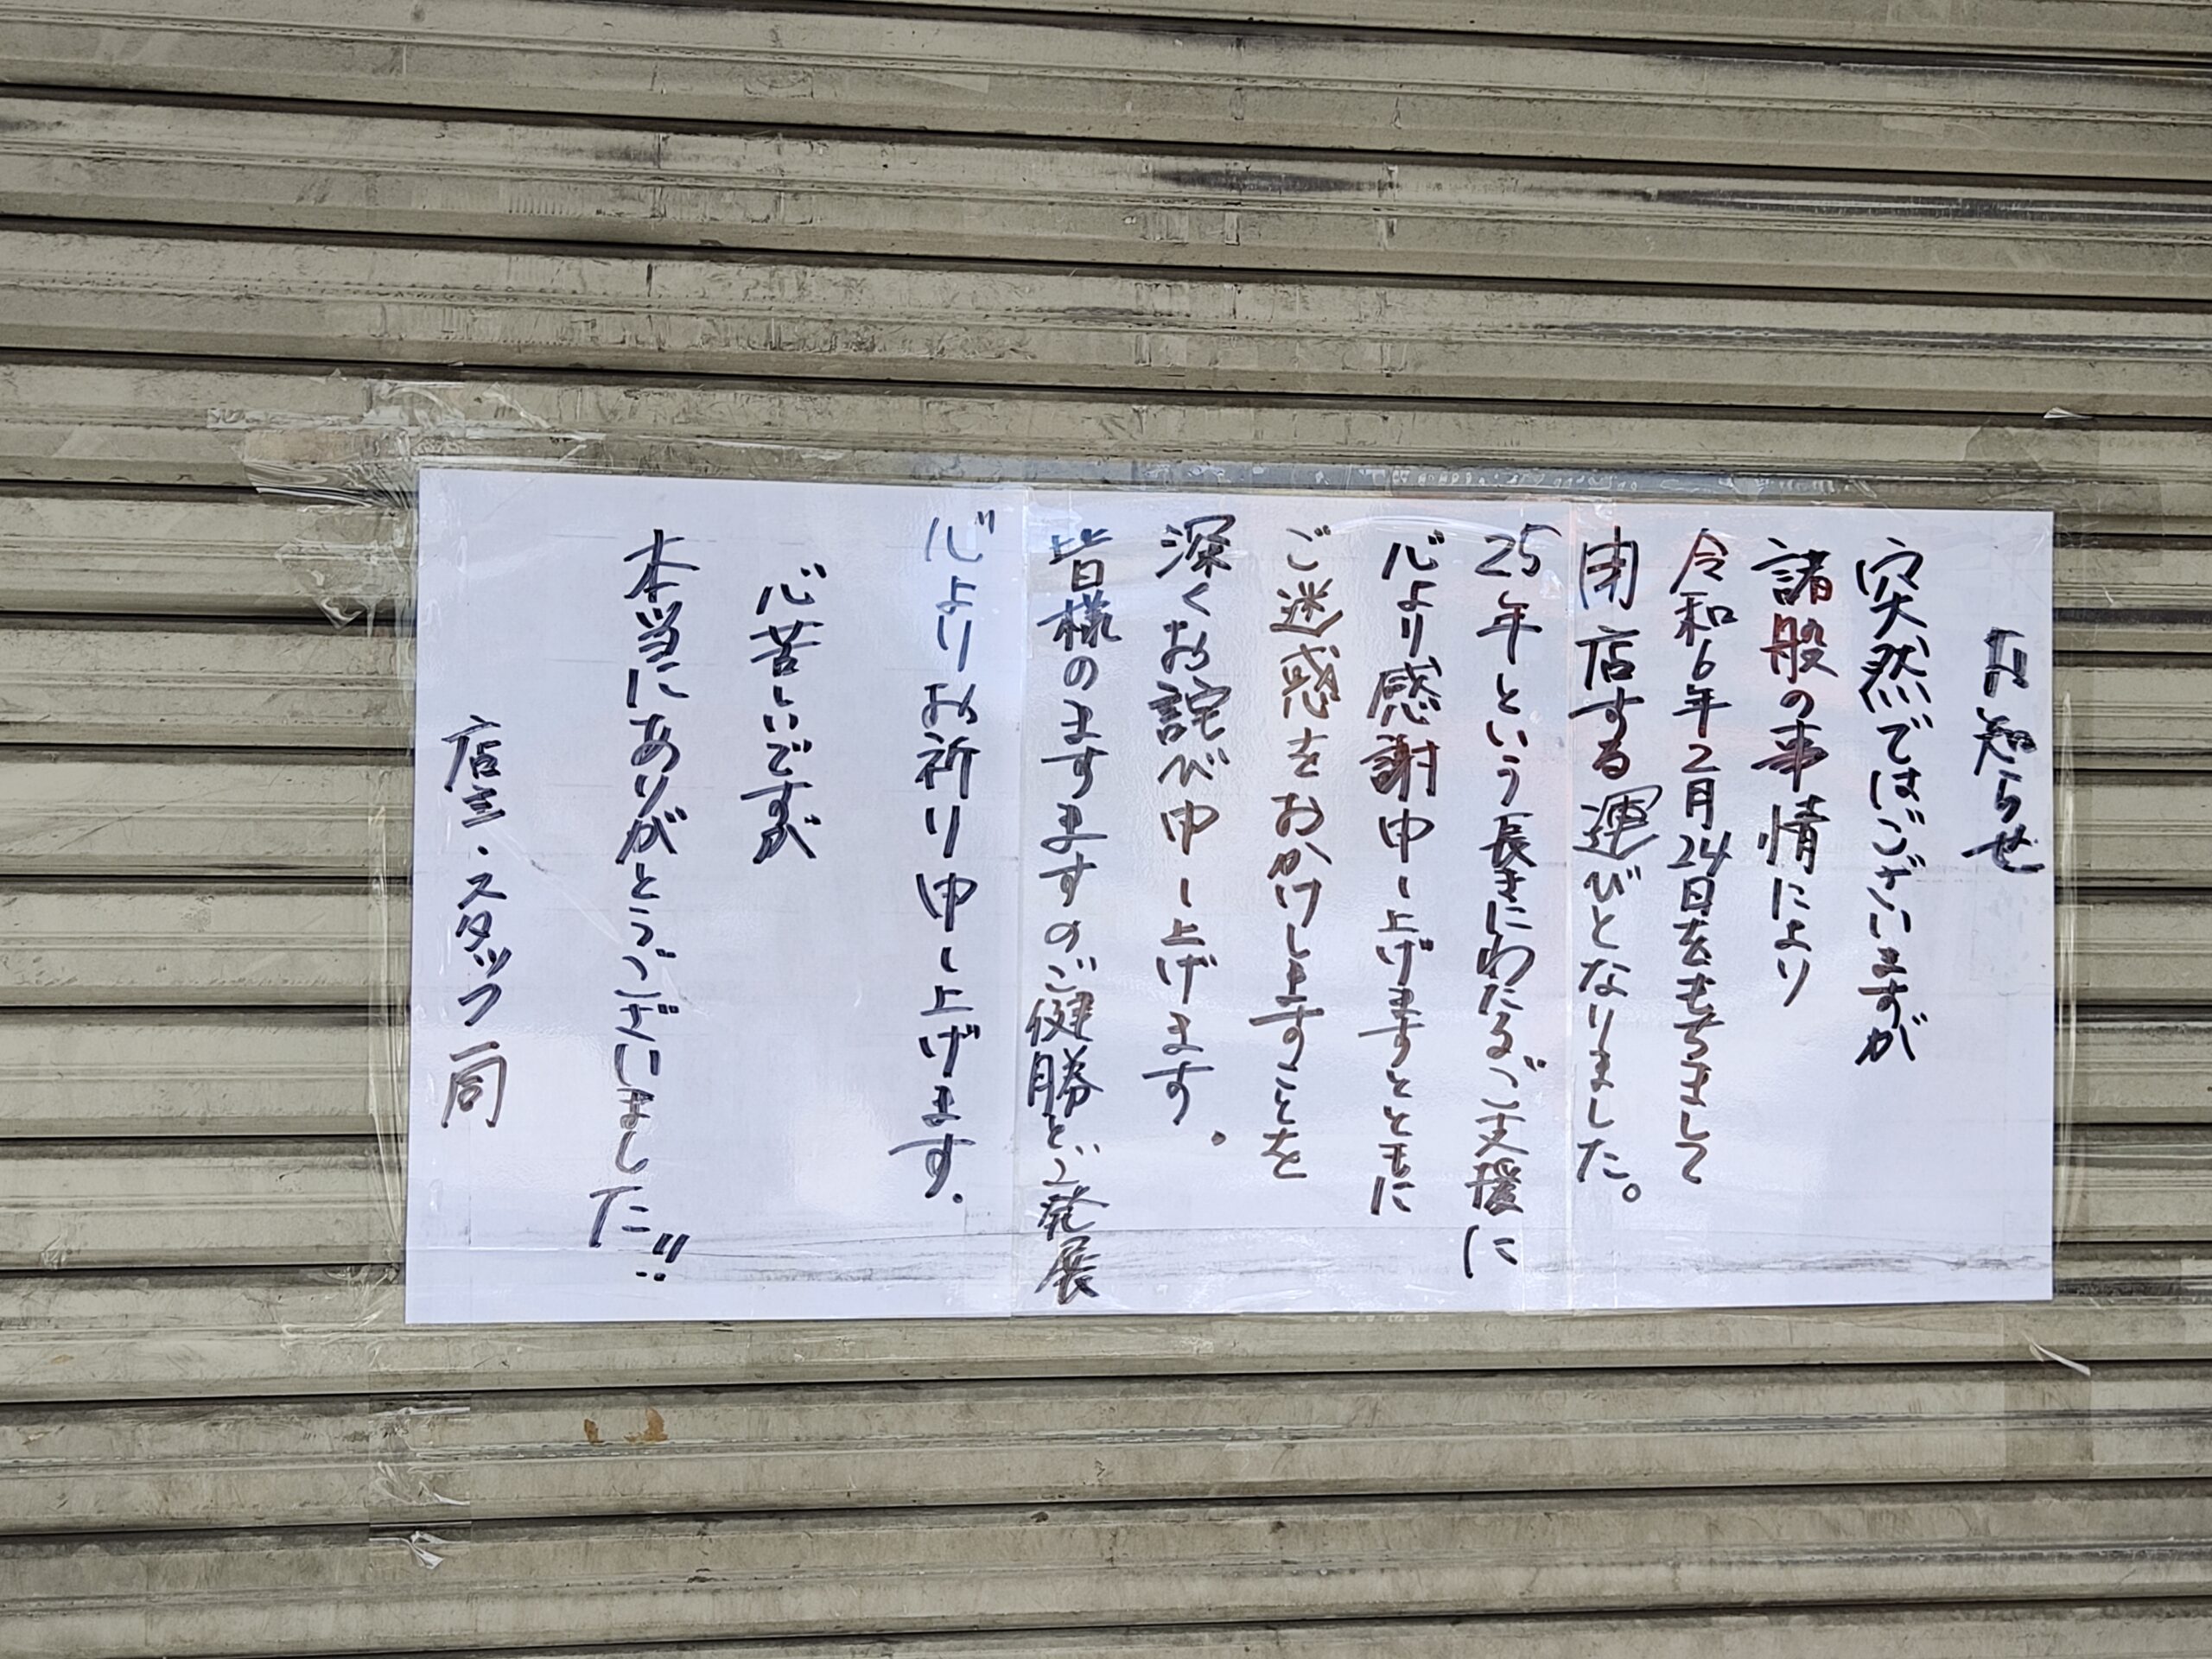 お知らせ
突然ではございますが
諸般の事情により
令和6年2月24日をもちまして
閉店する運びとなりました。
25年という長きにわたるご支援に
心より感謝申し上げますとともに
ご迷惑をおかけしますことを
深くお詫び申し上げます。
皆様のますますのご健勝とご発展
心よりお祈り申し上げます。
心苦しいですが
本当にありがとうございました!!
店主・スタッフ一同